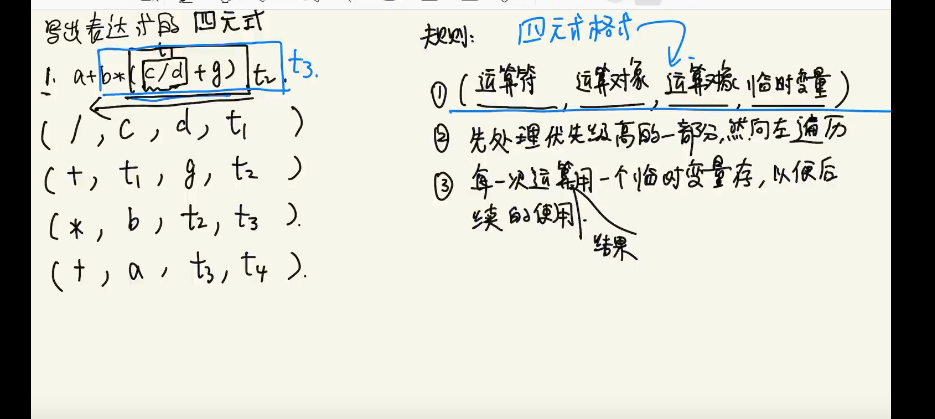 写出表达式的 四元式
1. a+b*(c/d+g) t₂ t₃.
t₁
( / , c , d , t₁ )
( + , t₁ , g , t₂ )
( * , b , t₂ , t₃ ).
( + , a , t₃ , t₄ ).
规则: 四元式格式
① ( 运算符 , 运算对象 , 运算对象 , 临时变量 )
② 先处理优先级高的一部分,然向左遍历
③ 每一次运算用一个临时变量存,以便后
续的使用.
结果